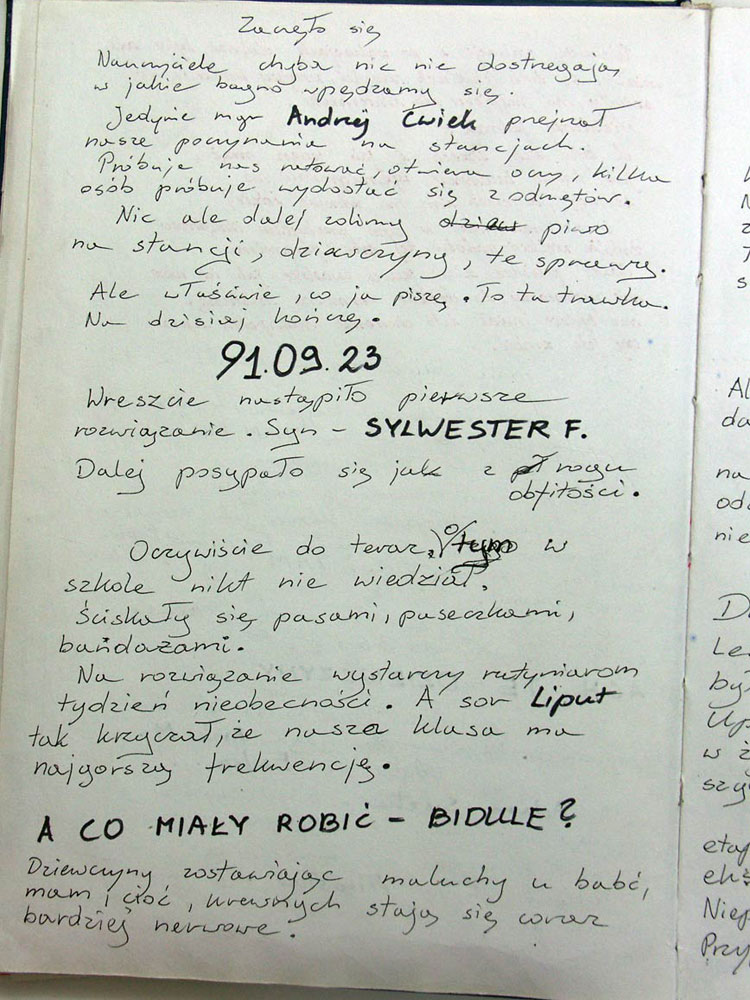 Zaczęło się
Nauczyciele chyba nic nie dostrzegają
w jakie bagno wpędzamy się.
Jedynie mgr Andrzej Ćwiek przejrzał
nasze poczynania na stancjach.
Próbuje nas ratować, otwiera oczy, kilka
osób próbuje wydostać się z odmętów.
Nic ale dalej robimy piwo
na stancji, dziewczyny, te sprawy.
Ale właściwie, co ja piszę. To ta trawka.
Na dzisiaj kończę.
91.09.23
Wreszcie nastąpiło pierwsze
rozwiązanie. Syn - SYLWESTER F.
Dalej posypało się jak z rogu
obfitości.
Oczywiście do teraz, o tym w
szkole nikt nie wiedział.
Ściskały się pasami, paseczkami,
bandażami.
Na rozwiązanie wystarczy rutyniarom
tydzień nieobecności. A sor Liput
tak krzyczał, że nasza klasa ma
najgorszą frekwencję.
A CO MIAŁY ROBIĆ - BIDULE?
Dziewczyny zostawiając maluchy u babć,
mam i cioć, krewnych stają się coraz
bardziej nerwowe.